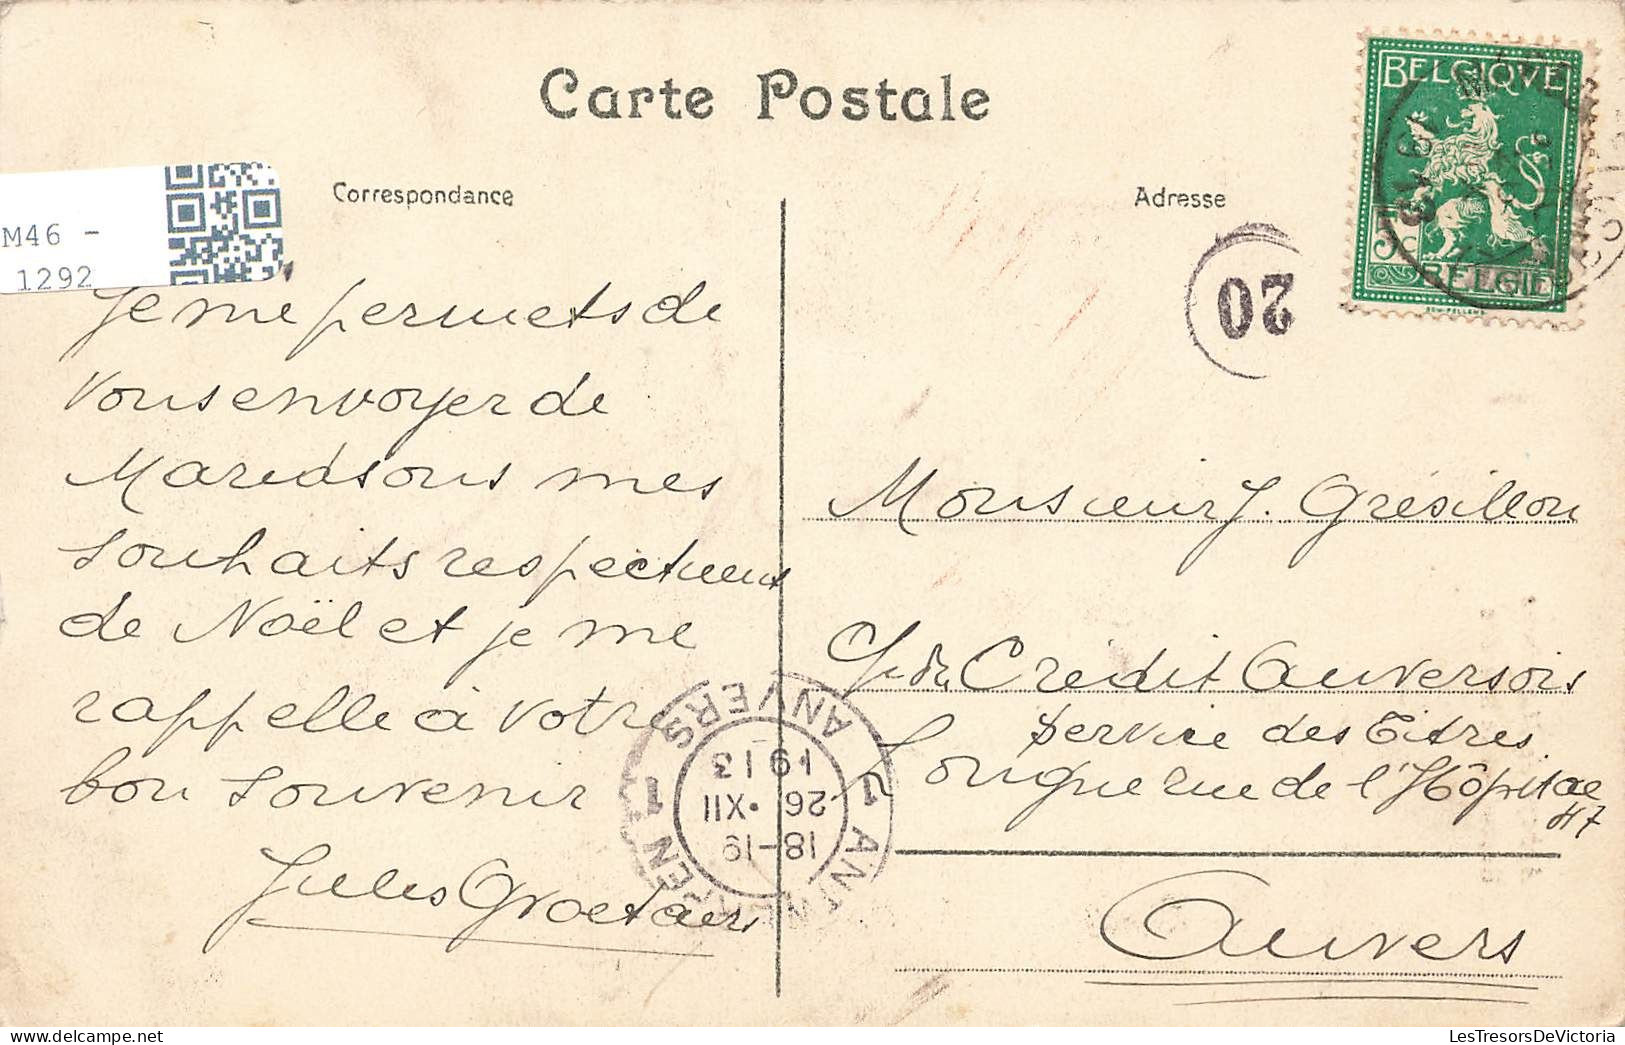 Carte Postale
Correspondance
Adresse
M46 -
1292
BELGIQUE
5c
BELGIË
20
Je me permets de
vous envoyer de
Maredsous mes
souhaits respectueux
de Noël et je me
rappelle à votre
bon souvenir
Jules Groetaers
Monsieur J. Grésillon
Crédit Anversois
Service des Titres
Longue rue de l'Hôpital
47
Anvers
1 ANVERS 1
ANTWERPEN
18-19
26 • XII
1913
LesTresorsDeVictoria